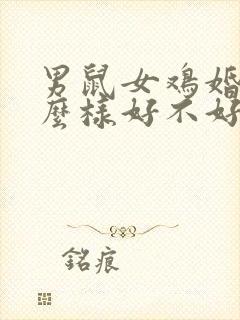 男鼠女鸡婚
麼樣好不好
銘痕